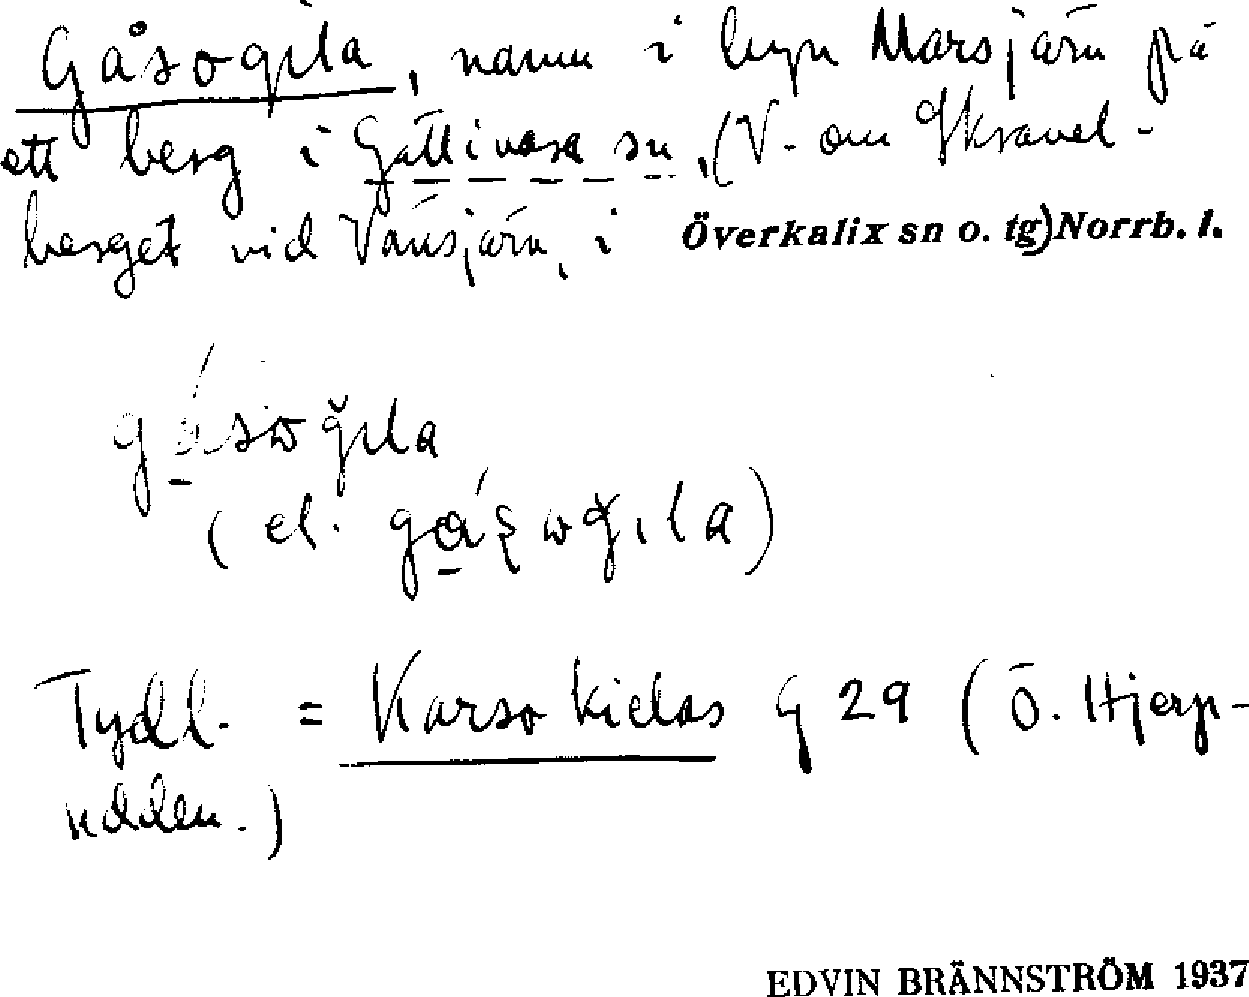 Gåsogila, namn i byn Marsjärv på
ett berg i Gällivare sn, (V. om Skravel-
berget vid Vänsjärv, i Överkalix sn o. tg) Norrb. l.
gásωğıla
(el. gáşωğıla)
Tydl. = Karso kielas G 29 (Ö. Hjerp-
udden.)
EDVIN BRÄNNSTRÖM 1937